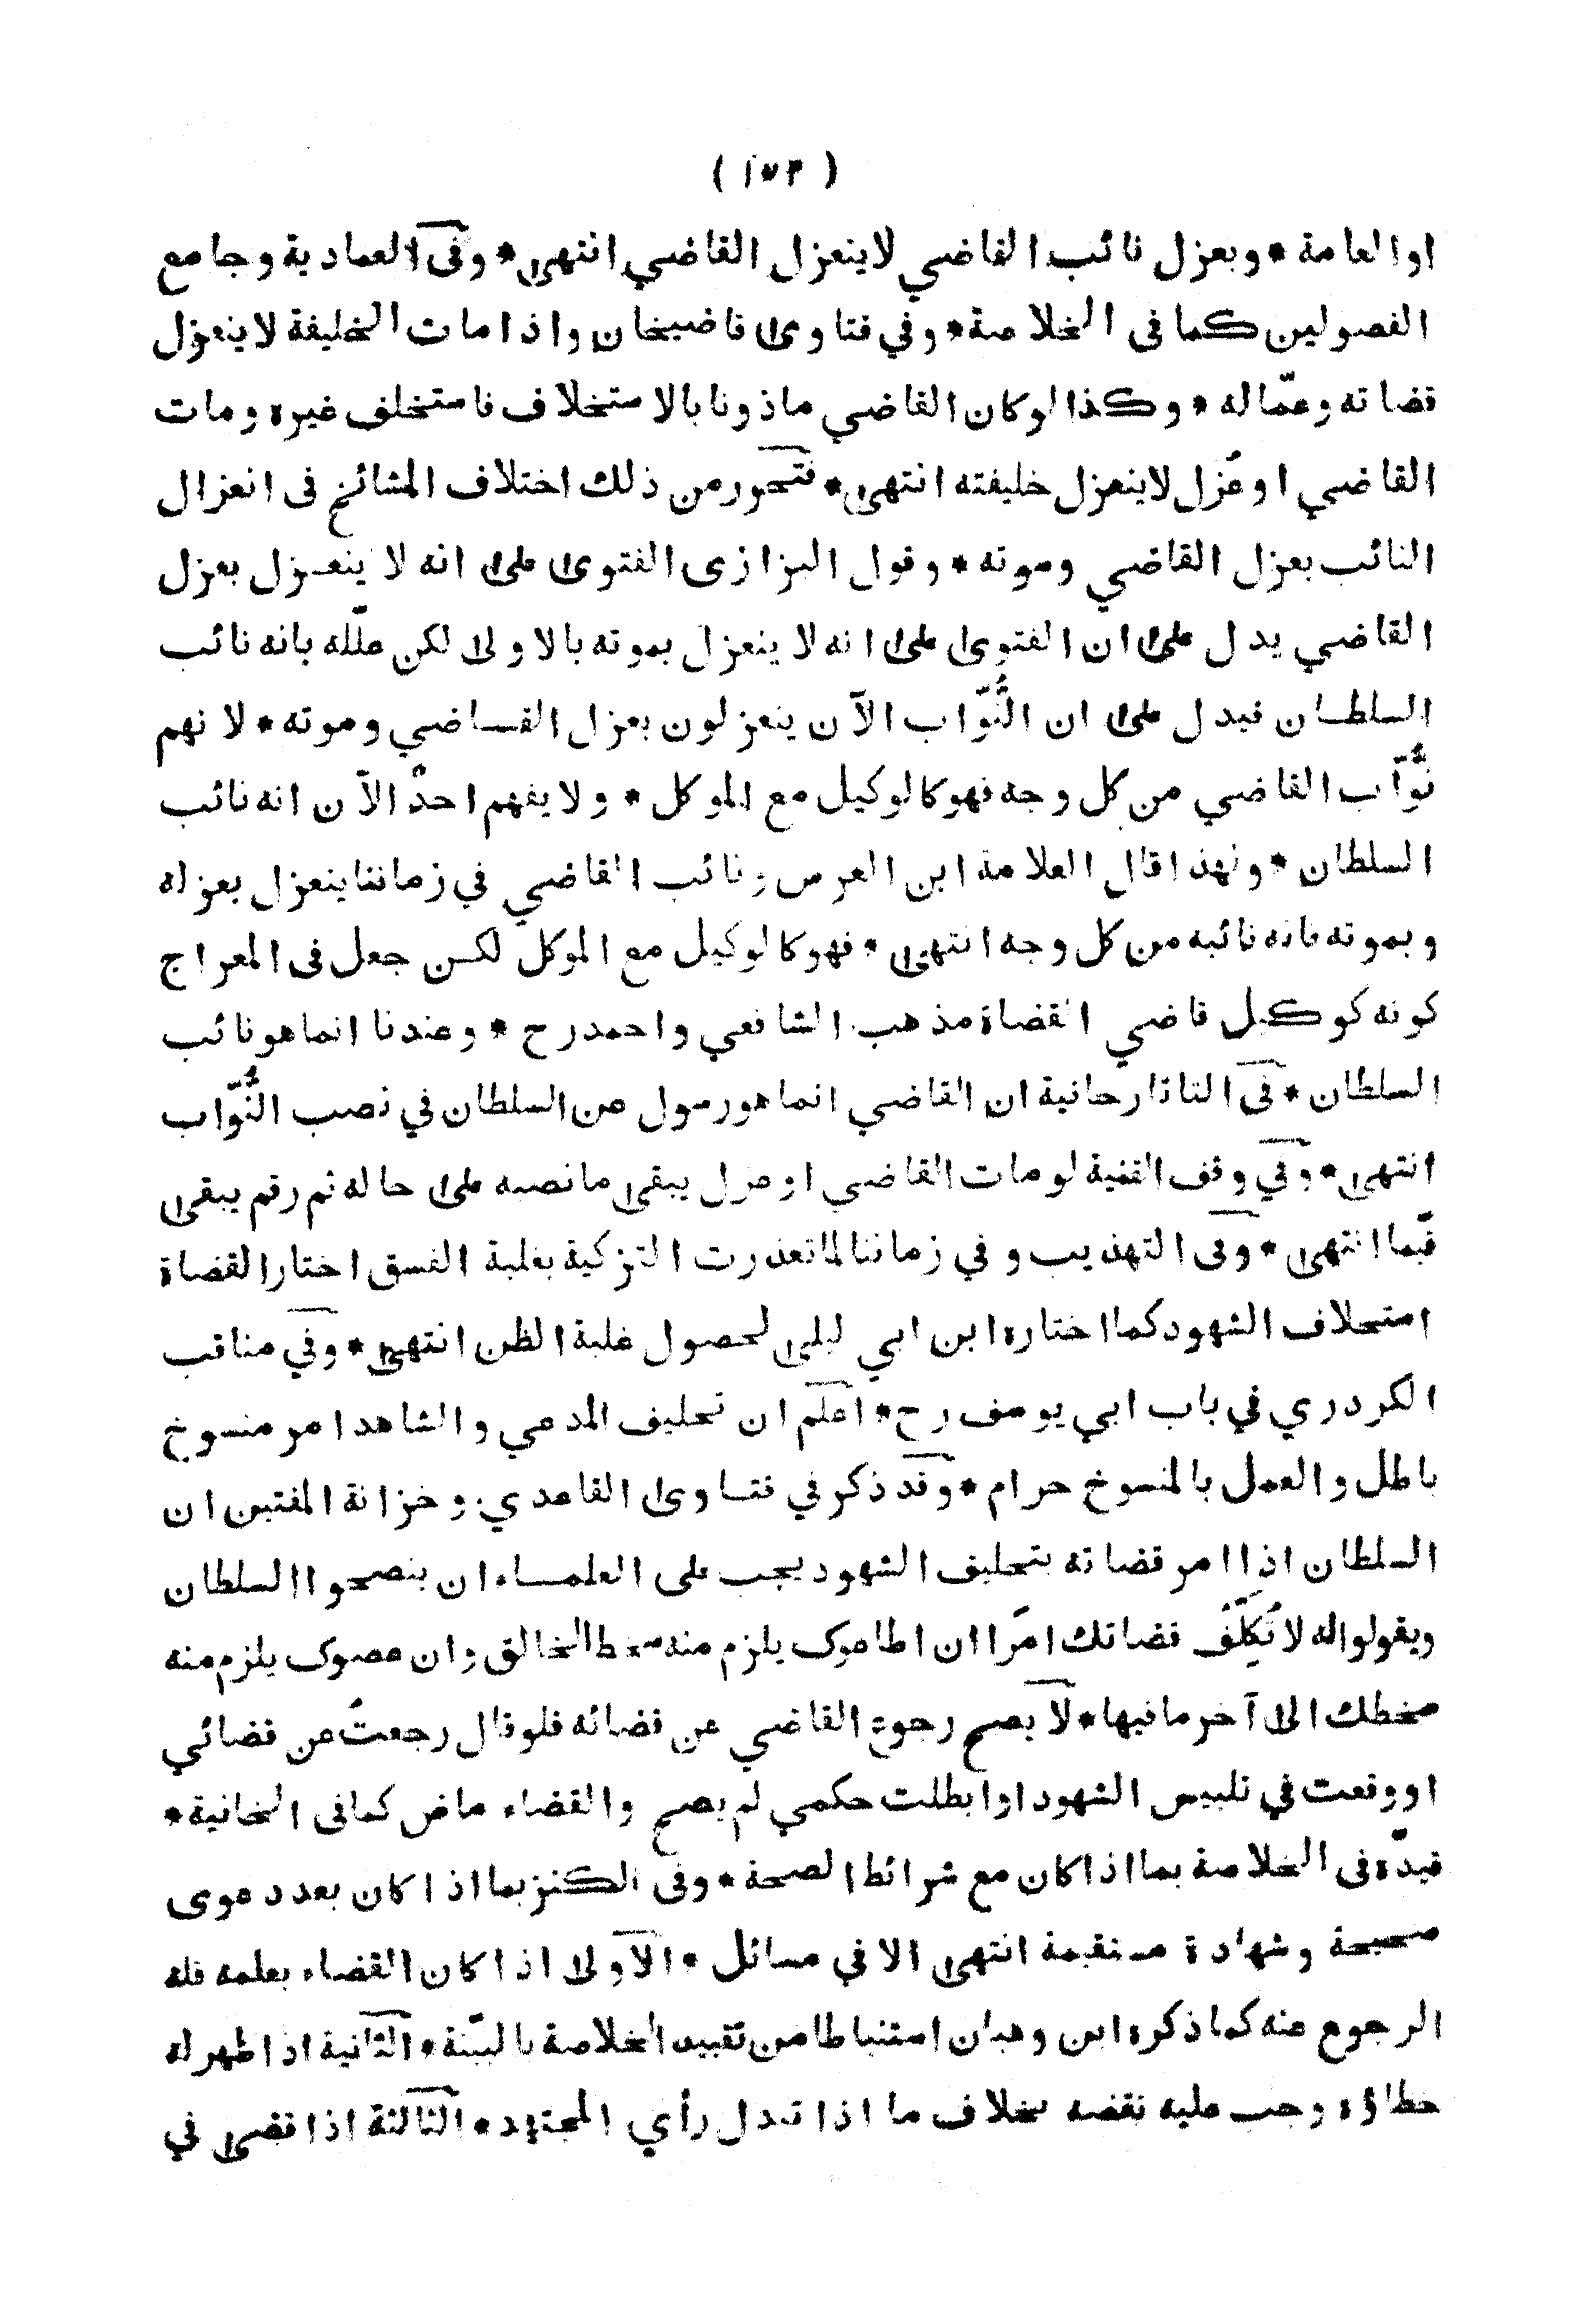 ( ١٧٣ )
او العامة * وبعزل نائب القاضي لاينعزل القاضي انتهى * وفى العمادية وجامع
الفصولين كما فى الخلاصة * وفي فتاوى قاضيخان واذا مات الخليفة لاينعزل
قضاته وعمّاله * وكذا لوكان القاضي ماذونا بالاستخلاف فاستخلف غيره ومات
القاضي اوعُزل لاينعزل خليفته انتهى * فتحرر من ذلك اختلاف المشائخ فى انعزال
النائب بعزل القاضي وموته * وقول البزازى الفتوى على انه لا ينعزل بعزل
القاضي يدل على ان الفتوى على انه لا ينعزل بموته بالاولى لكن علّله بانه نائب
السلطان فيدل على ان النُّوّاب الآن ينعزلون بعزل القاضي وموته * لانهم
نُوّاب القاضي من كل وجه فهوكالوكيل مع الموكل * ولا يفهم احدٌ الآن انه نائب
السلطان * ولهذا قال العلامة ابن الغرس ونائب القاضي في زماننا ينعزل بعزله
وبموته فانه نائبه من كل وجه انتهى * فهوكالوكيل مع الموكل لكن جعل فى المعراج
كونه كوكيل قاضي القضاة مذهب الشافعي واحمد رح * وعندنا انما هونائب
السلطان * فى التاتارخانية ان القاضي انما هورسول عن السلطان في نصب النُّوّاب
انتهى * وفي وقف القنية لومات القاضي اوعزل يبقى مانصبه على حاله ثم رقم يبقى
قيّما انتهى * وفى التهذيب و في زماننا لما تعذرت التزكية بغلبة الفسق اختار القضاة
استحلاف الشهود كما اختاره ابن ابي ليلى لحصول غلبة الظن انتهى * وفي مناقب
الكردري في باب ابي يوسف رح * اعلم ان تحليف المدعي والشاهد امر منسوخ
باطل والعمل بالمنسوخ حرام * وقد ذكر في فتاوى القاعدي وخزانة المفتين ان
السلطان اذا امر قضاته بتحليف الشهود يجب على العلماء ان ينصحوا السلطان
ويقولوا له لا تُكلِّفْ قضاتك امرًا ان اطاعوك يلزم منه سخط الخالق وان عصوك يلزم منه
سخطك الى آخر مافيها * لا يصح رجوع القاضي عن قضائه فلوقال رجعتُ عن قضائي
اووقعت في تلبيس الشهود اوابطلت حكمي لم يصح والقضاء ماض كمافى الخانية *
قيدّه فى الخلاصة بما اذا كان مع شرائط الصحة * وفى الكنز بما اذا كان بعد دعوى
صحيحة وشهادة مستقيمة انتهى الا في مسائل * الاولى اذا كان القضاء بعلمه فله
الرجوع عنه كما ذكره ابن وهبان استنباطا من تقييد الخلاصة بالبيّنة * الثانية اذا ظهر له
خطاؤه وجب عليه نقضه بخلاف ما اذا تبدل رأي المجتهد * الثالثة اذا قضى في